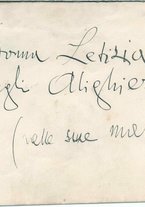 onna Letizia
gli Alighier
(nelle sue ma